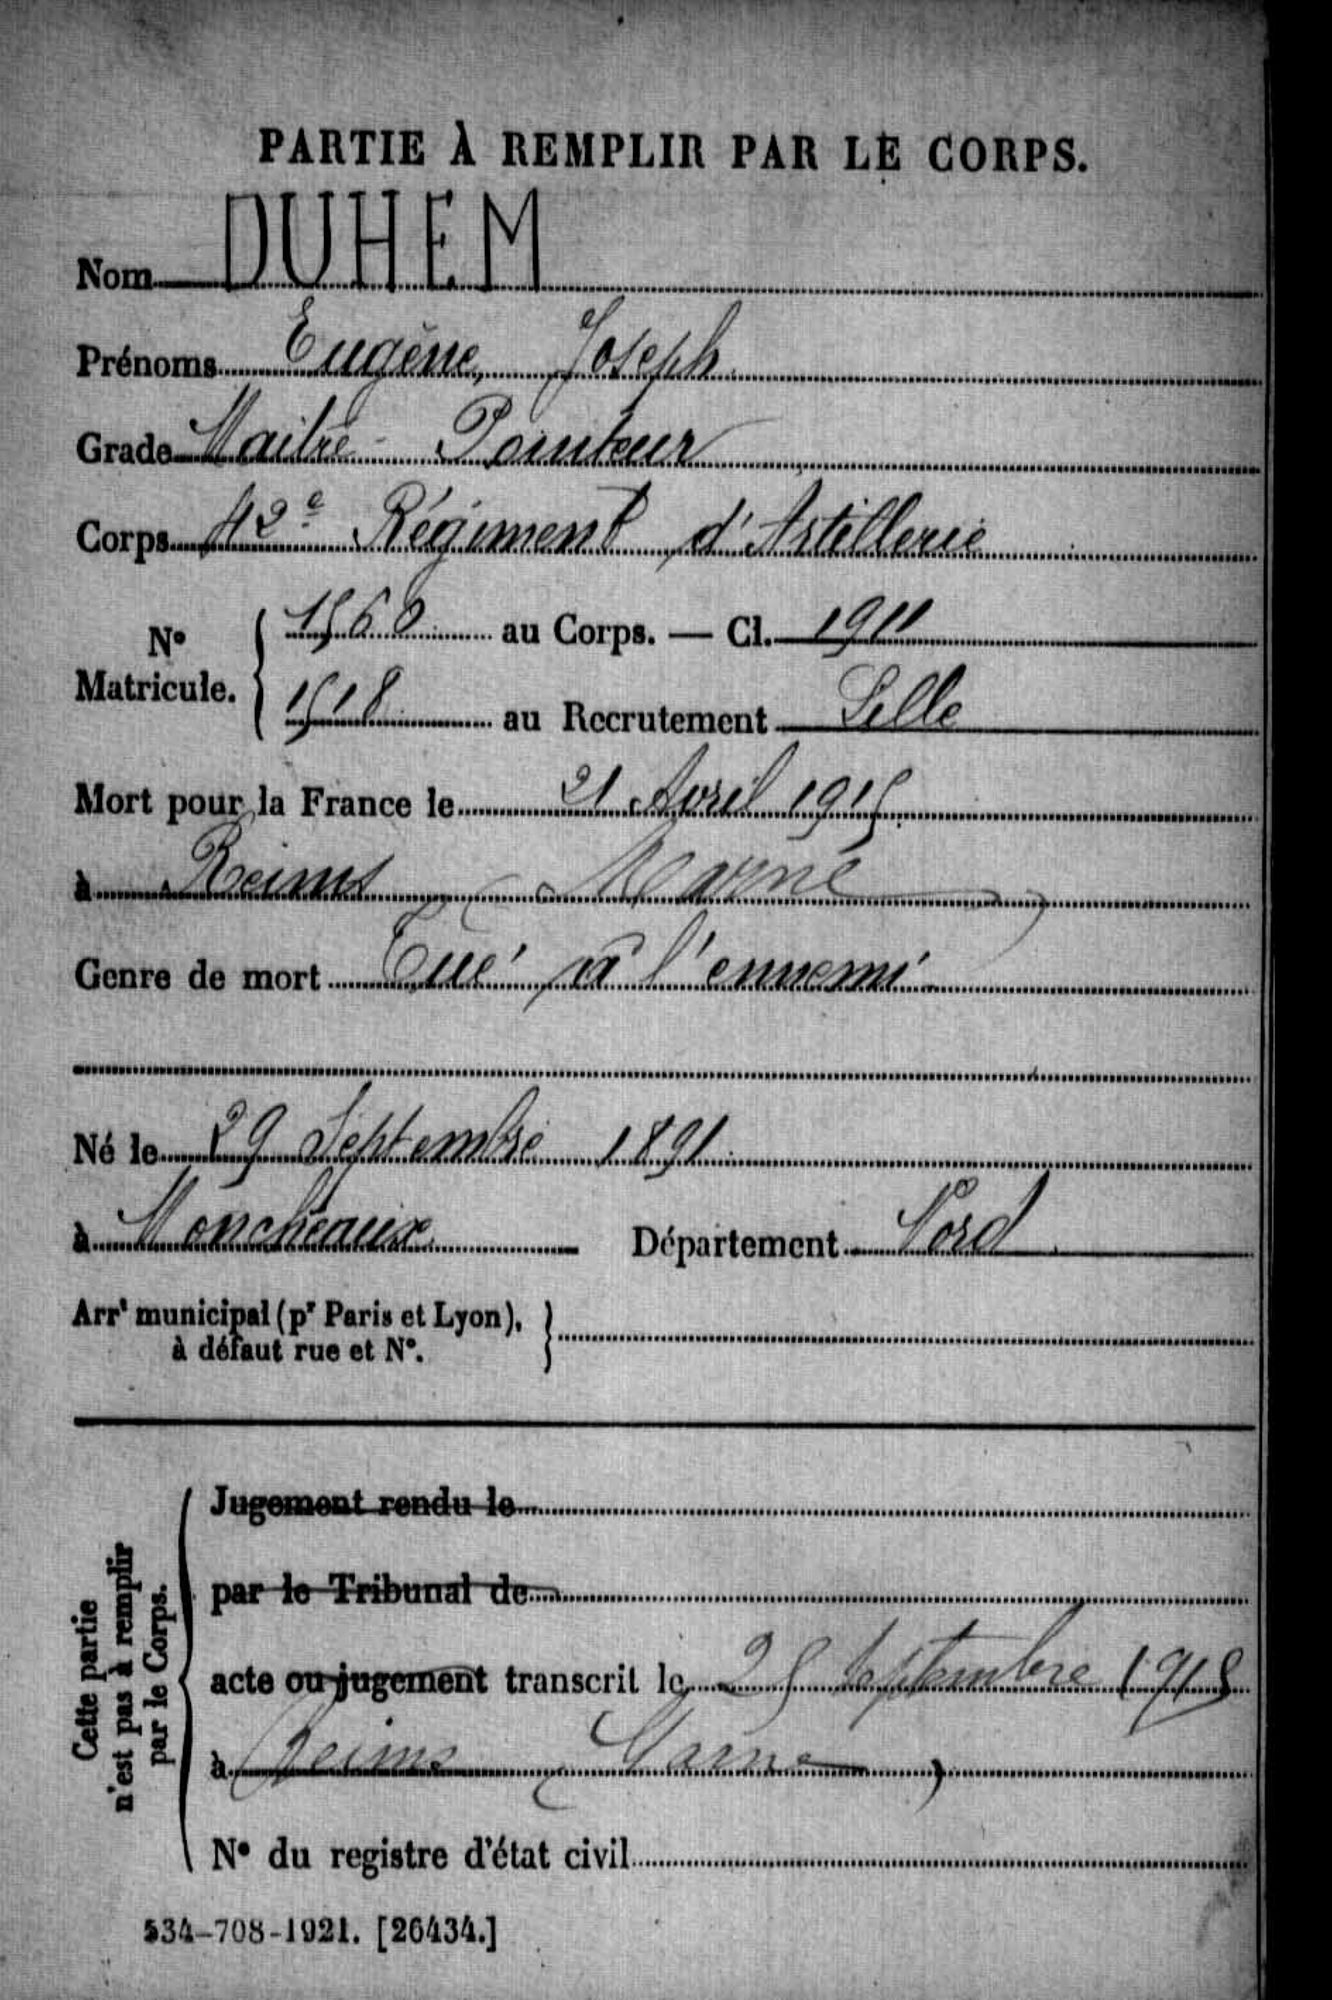 PARTIE À REMPLIR PAR LE CORPS.
Nom DUHEM
Prénoms Eugène, Joseph
Grade Maitre-Pointeur
Corps 42e Régiment d'Artillerie
N° Matricule. { 1560 au Corps. — Cl. 1911
1518 au Recrutement Lille
Mort pour la France le 21 Avril 1915
à Reims (Marne)
Genre de mort Tué à l'ennemi
Né le 29 Septembre 1891
à Moncheaux Département Nord
Arrt municipal (pr Paris et Lyon),
à défaut rue et N°. }
Cette partie
n'est pas à remplir
par le Corps.
Jugement rendu le
par le Tribunal de
acte ou jugement transcrit le 25 Septembre 1915
à Reims (Marne)
N° du registre d'état civil
534-708-1921. [26434.]